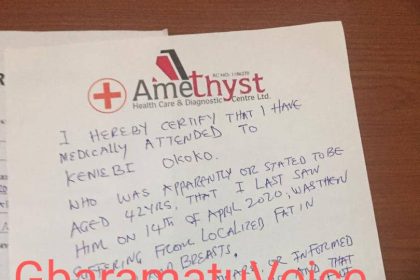 RC NO: 1186270
Amethyst
Health Care & Diagnostic Centre Ltd.
I HEREBY CERTIFY THAT I HAVE
MEDICALLY ATTENDED TO
KENIEBI OKOKO.
WHO WAS APPARENTLY OR STATED TO BE
AGED 42YRS. THAT I LAST SAW
HIM ON 14TH OF APRIL 2020, WAS THEN
SUFFERING FROM LOCALIZED FAT IN
BREASTS.
OR INFORMED
THAT
Gbaramatu Voice